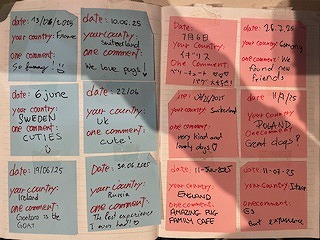 date: 13/06/2025
your country: France
one comment:
So funny!
date: 10.06.25
your country:
Switzerland
one comment:
We love pugs!
date:
6 june
your country:
SWEDEN
one comment:
CUTIES
date: 22/06
your country:
UK
one comment:
cute!
date: 19/06/25
your country:
Ireland
one comment:
is the
GOAT
date: 30.06.2025
your country:
Russia
one comment:
The best experience
I ever had!
date:
7月6日
your country:
イギリス
one comment:
date: 26.7.25
your country:
Germany
one comment: We
found new
friends
date:
your country: Switzerland
one comment:
very kind and
lovely dogs
date: 11/7/25
your country:
POLAND
one comment:
Great dogs!
date:
your country:
ENGLAND
one comment:
AMAZING PUG
FAMILY CAFE
date: 11-07-25
your country:
one comment:
Best experience